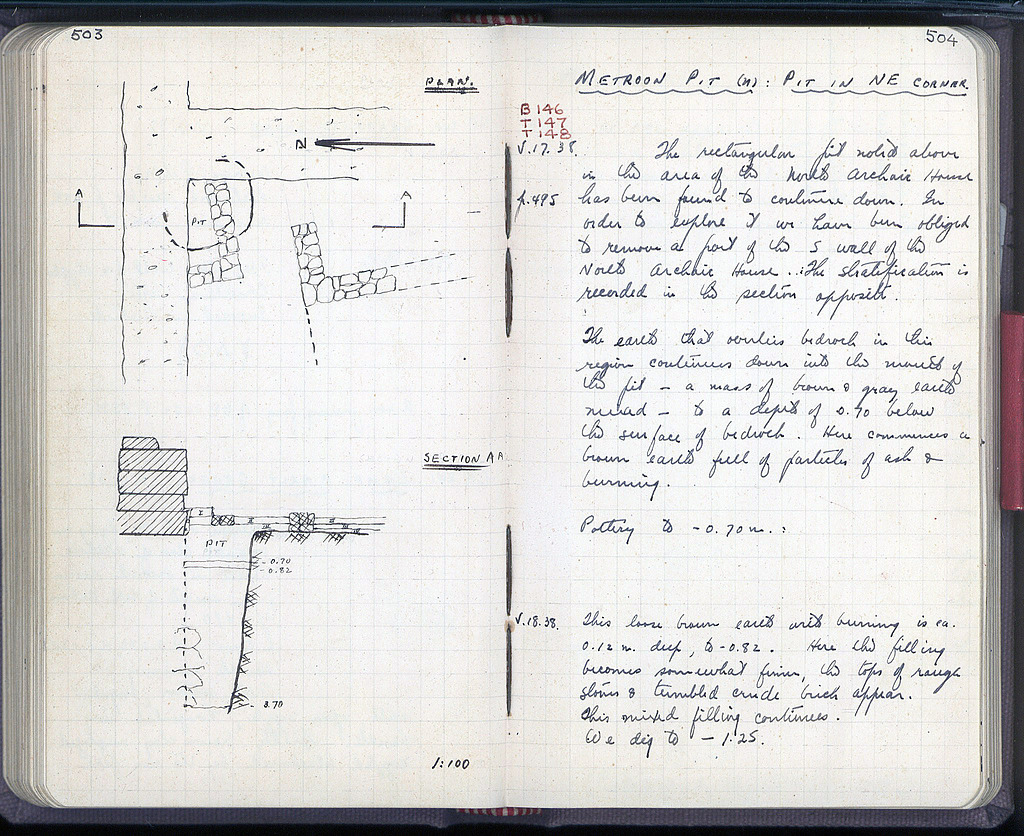 503
PLAN.
N
A
A
PIT
SECTION AA
I
II
III
PIT
- 0.70
- 0.82
- 3.70
1:100
504
METROON PIT (N): PIT IN NE CORNER
B 146
T 147
T 148
V.17.38.
The rectangular pit noted above
in the area of the North Archaic House
p.495
has been found to continue down. In
order to explore it we have been obliged
to remove a part of the S wall of the
North Archaic House. The stratification is
recorded in the section opposite.
The earth that overlies bedrock in this
region continues down into the mouth of
the pit - a mass of brown & gray earth
mixed - to a depth of 0.70 below
the surface of bedrock. Here commences a
brown earth full of particles of ash &
burning.
Pottery to - 0.70 m. :
V.18.38.
This loose brown earth with burning is ca.
0.12 m. deep, to -0.82. Here the filling
becomes somewhat finer, the tops of rough
stones & tumbled crude brick appear.
This mixed filling continues.
We dig to - 1.25.